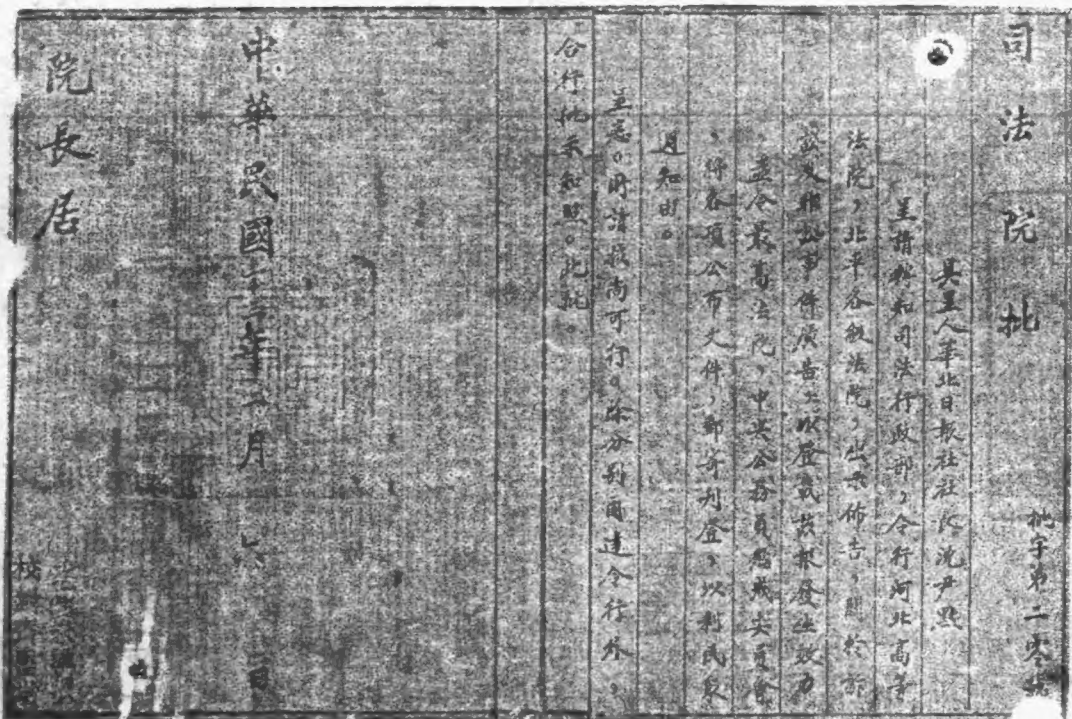 司法院批
批字第二零號
具呈人華北日報社社長沈尹默
呈請轉知司法行政部，令行河北高等
法院，北平各級法院，出示佈告，關於訴
訟及非訟事件廣告上以登載該報發生效力
並令最高法院，中央公務員懲戒委員會
，將各項公布文件，郵寄刊登，以利民衆
週知由。
呈悉。所請核尚可行。除分別函達令行外，
合行批示知照。此批。
中華民國二十二年 月 六 日
院長居
校對